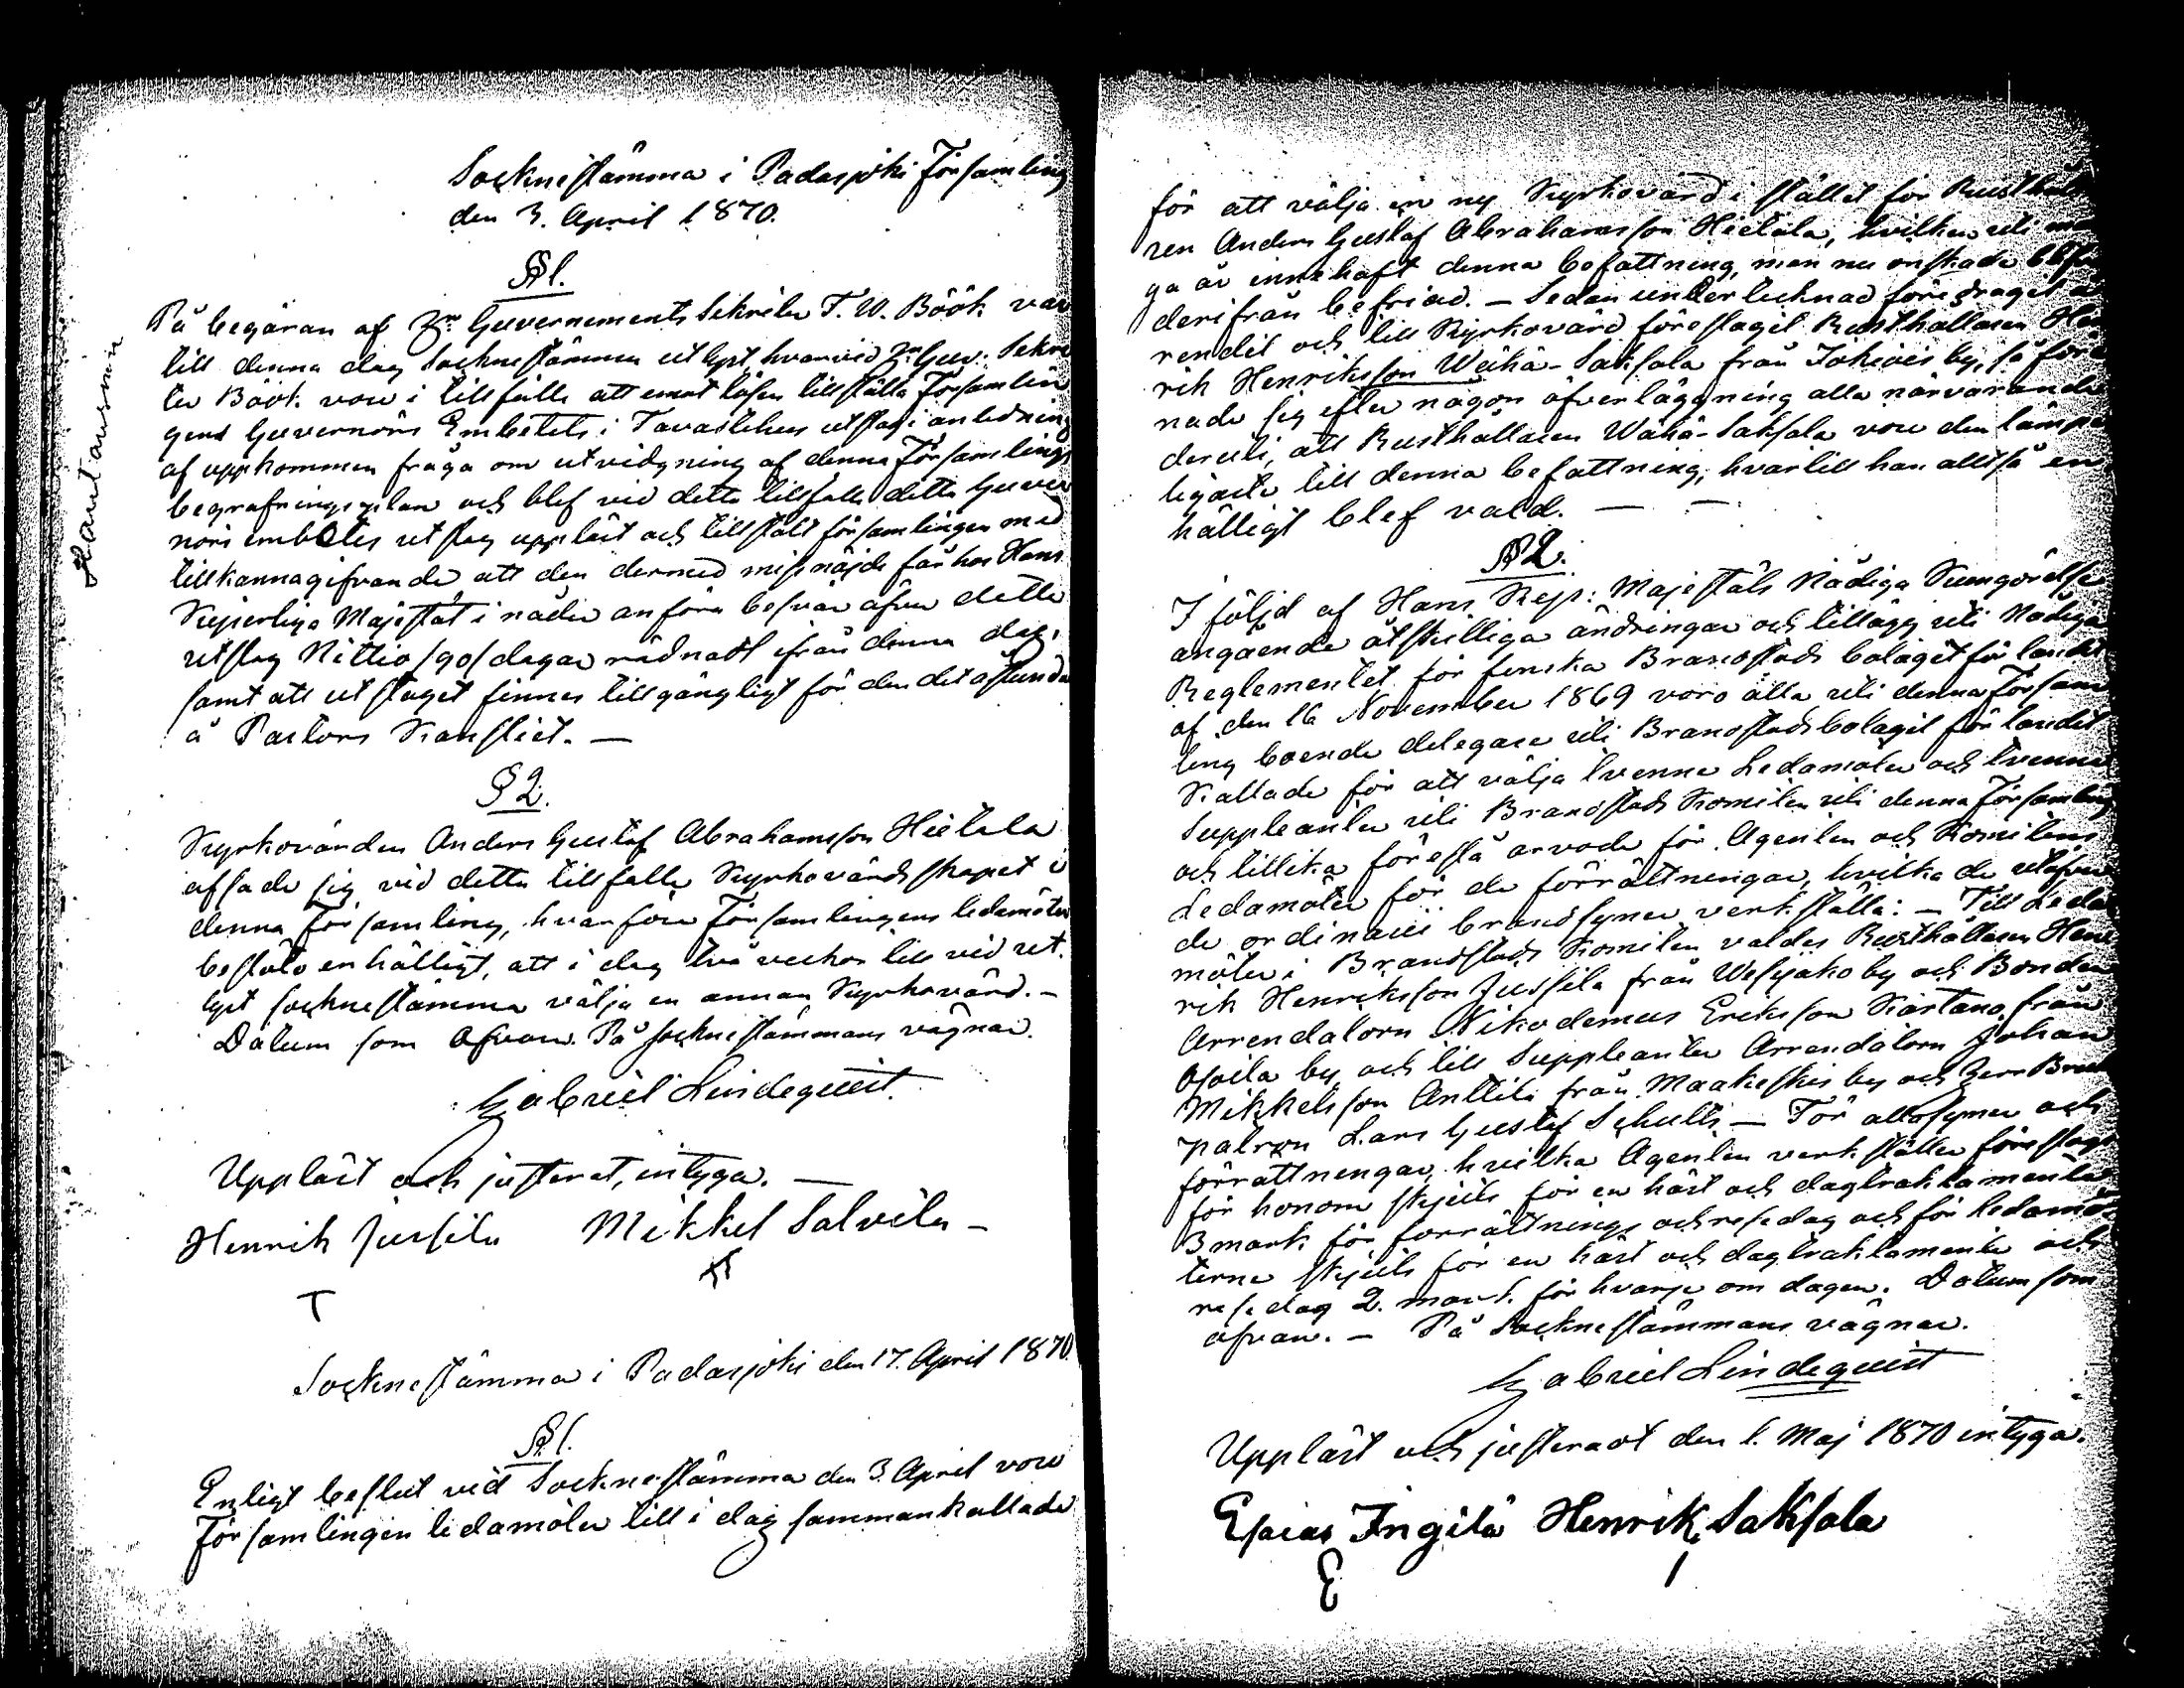 Hautausm
Sockne stämma i Padasjoki Församling
den 3. April 1870.
§ 1.
På begäran af Hr Guvernements Sekreter T. W. Böök var
till denna dag Socknestämma utlyst, hvarvid Hr Guv: Sekre
ter Böök vore i tillfälle att emot lösen tillställa Församlin
gens Guvernörs Embetets i Tavastehus utslag i anledning
af uppkommen fråga om utvidgning af denna Församlings
begrafningsplan och blef vid detta tillfälle detta Guver
nörs embetes utslag uppläst och tillstält församlingen med
tillkännagifvande, att den dermed missnöjde får hos Hans
Kejserliga Majestät i nåder anföra besvär öfver detta
utslag Nittio /90/ dagar räknadt ifrån denna dag,
samt att utslaget finnes tillgängligt för den det åstunda
å Pastors Kansliet. —
§ 2.
Kyrkovärden Anders Gustaf Abrahamsson Hietala
afsade sig vid detta tillfälle Kyrkovärdskapet i
denna församling, hvarföre Församlingens ledamöter
beslöto enhälligt, att i dag två veckor till vid ut-
lyst socknestämma välja en annan Kyrkovärd. —
Datum som ofvan. På socknestämmans vägnar.
Gabriel Lindequist.
Uppläst och justerat, intyga. —
Henrik Jussila Mikkel Salvila —
T
Socknestämma i Padasjoki den 17. April 1870.
§ 1.
Enligt beslut vid Socknestämma den 3. April vore
Församlingen ledamöter till i dag sammankallade
för att välja en ny Kyrkovärd i stället för Rusthålla
ren Anders Gustaf Abrahamsson Hietala, hvilken uti
ga år innehaft denna befattning, men nu önskade blifva
derifrån befriad. — Sedan undertecknad föredragit ä
rendet och till Kyrkovärd föreslagit Rusthållaren Hen
rik Henriksson Wähä-Saksala från Jokiois by, så före
nade sig efter någon öfverläggning alla närvarande
deruti, att Rusthållaren Wähä-Saksala vore den lämp
ligaste till denna befattning, hvartill han alltså en
hälligt blef vald. — —
§ 2.
I följd af Hans Kejs: Majestäts Nådiga Kungörelse
angående åtskilliga ändringar och tillägg uti Nådiga
Reglementet för finska Brandstods bolaget för landet
af den 16 November 1869 voro alla uti denna Försam
ling boende delegare uti Brandstodsbolaget för landet
Kallade för att välja tvenne Ledamöter och tvenne
Suppleanter uti Brandstods Komiten uti denna Församling
och tillika föreslå arvode för Agenten och Komitens
Ledamöter för de förrättningar, hvilka de utöfver
de ordinarie brandsyner verkställa: — Till Leda
möter i Brandstods Komiten valdes Rusthållaren Hen
rik Henriksson Jussila från Wesijako by och Bonden
Arrendatorn Nikodemus Eriksson Kartano från
Osoila by och till Suppleanter Arrendatorn Johan
Mikkelsson Anttila från Maakeskis by och Herr Bruks
patron Lars Gustaf Schultz. — För alla syner och
förrättningar, hvilka Agenten verkställer föreslogs
för honom skjuts för en häst och dagtraktamente
3 mark för förrättnings och resedag och för ledamö
terne skjuts för en häst och dagtraktamente och
resedag 2. mark. för hvarje om dagen. Datum som
ofvan. — På Socknestämmans vägnar.
Gabriel Lindequist
Uppläst och justeradt den 1. Maj 1870 intyga.
Esaias Ingilä Henrik Saksala
E